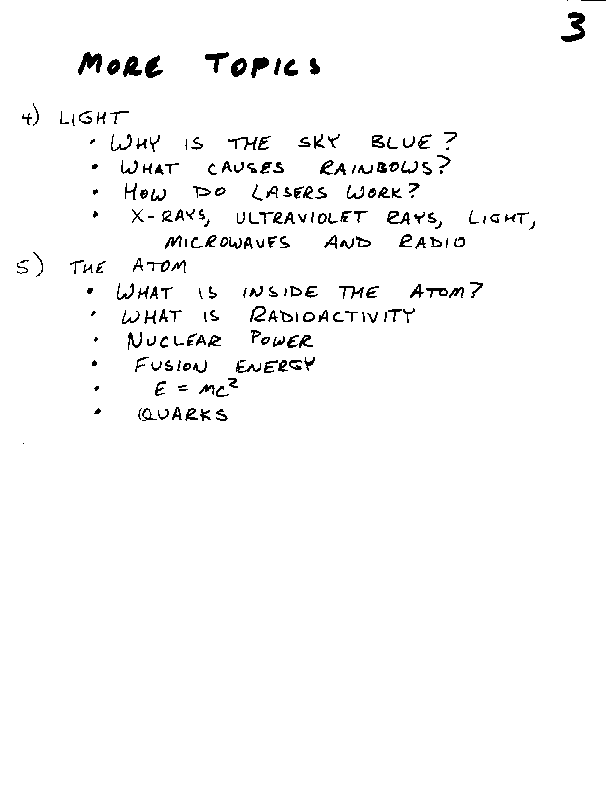 3
MORE TOPICS
4) LIGHT
• WHY IS THE SKY BLUE?
• WHAT CAUSES RAINBOWS?
• HOW DO LASERS WORK?
• X-RAYS, ULTRAVIOLET RAYS, LIGHT,
MICROWAVES AND RADIO
5) THE ATOM
• WHAT IS INSIDE THE ATOM?
• WHAT IS RADIOACTIVITY
• NUCLEAR POWER
• FUSION ENERGY
• E = MC²
• QUARKS